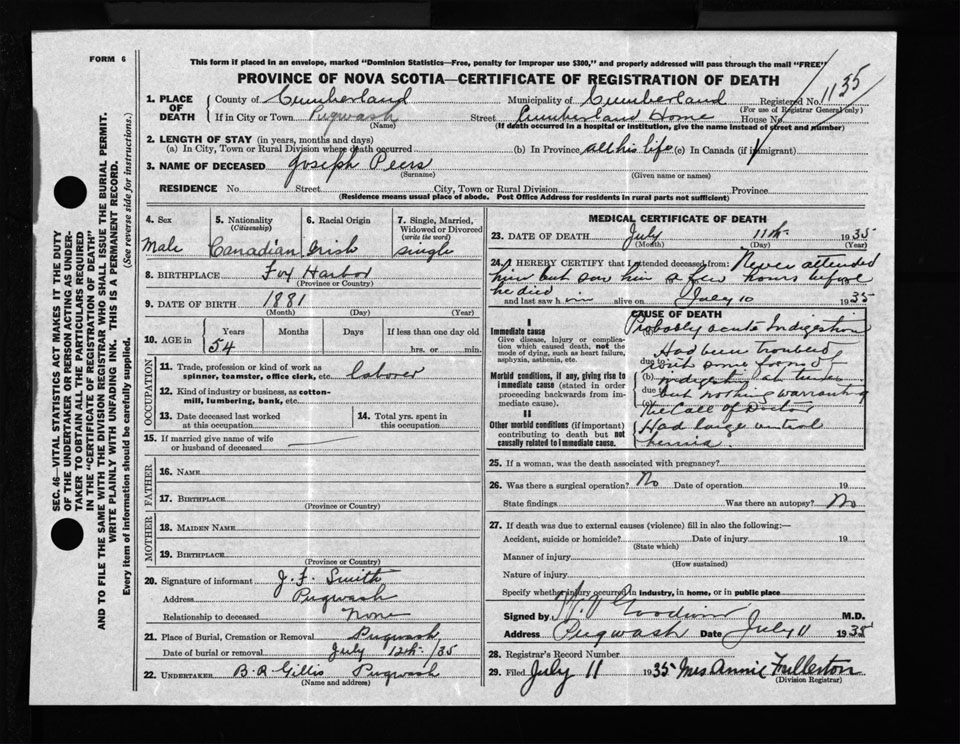 FORM 6
This form if placed in an envelope, marked "Dominion Statistics—Free, penalty for improper use $300," and properly addressed will pass through the mail "FREE"
PROVINCE OF NOVA SCOTIA—CERTIFICATE OF REGISTRATION OF DEATH
1135
1. PLACE OF DEATH
County of Cumberland Municipality of Cumberland Registered No.
(For use of Registrar General only)
If in City or Town Pugwash Street Cumberland Home House No.
(Name) (If death occurred in a hospital or institution, give the name instead of street and number)
2. LENGTH OF STAY (in years, months and days)
(a) In City, Town or Rural Division where death occurred (b) In Province all his life (c) In Canada (if immigrant)
3. NAME OF DECEASED Joseph Peers
(Surname) (Given name or names)
RESIDENCE No. Street City, Town or Rural Division Province
(Residence means usual place of abode. Post Office Address for residents in rural parts not sufficient)
4. Sex 5. Nationality (Citizenship) 6. Racial Origin 7. Single, Married, Widowed or Divorced (write the word)
Male Canadian Irish single
8. BIRTHPLACE Fox Harbor
(Province or Country)
9. DATE OF BIRTH 1881
(Month) (Day) (Year)
10. AGE in Years Months Days If less than one day old
54 hrs. or min.
OCCUPATION
11. Trade, profession or kind of work as spinner, teamster, office clerk, etc. laborer
12. Kind of industry or business, as cotton-mill, lumbering, bank, etc.
13. Date deceased last worked at this occupation
14. Total yrs. spent in this occupation
15. If married give name of wife or husband of deceased
FATHER
16. NAME
17. BIRTHPLACE
(Province or Country)
MOTHER
18. MAIDEN NAME
19. BIRTHPLACE
(Province or Country)
20. Signature of informant J. F. Smith
Address Pugwash
Relationship to deceased None
21. Place of Burial, Cremation or Removal Pugwash
Date of burial or removal July 12th /35
22. UNDERTAKER B R Gillis Pugwash
(Name and address)
MEDICAL CERTIFICATE OF DEATH
23. DATE OF DEATH July 11th 1935
(Month) (Day) (Year)
24. I HEREBY CERTIFY that I attended deceased from: Never attended
him but saw him a few hours before
he died
and last saw him alive on July 10 1935
CAUSE OF DEATH
I
Immediate cause
Give disease, injury or complication which caused death, not the mode of dying, such as heart failure, asphyxia, asthenia, etc.
Morbid conditions, if any, giving rise to immediate cause (stated in order proceeding backwards from immediate cause).
II
Other morbid conditions (if important) contributing to death but not causally related to immediate cause.
(a) Probably acute Indigestion
Had been troubled
due to with some form of
(b) indigestion at times
due to but nothing warranting
(c) the Call of Doctor
Had large ventral
hernia
25. If a woman, was the death associated with pregnancy?
26. Was there a surgical operation? No Date of operation 19
State findings Was there an autopsy? No
27. If death was due to external causes (violence) fill in also the following:—
Accident, suicide or homicide? Date of injury 19
(State which)
Manner of injury
(How sustained)
Nature of injury
Specify whether injury occurred in industry, in home, or in public place
Signed by Goodwin M.D.
Address Pugwash Date July 11 1935
28. Registrar's Record Number
29. Filed July 11 1935 Mrs Annie Fullerton
(Division Registrar)
SEC. 46—VITAL STATISTICS ACT MAKES IT THE DUTY
OF THE UNDERTAKER OR PERSON ACTING AS UNDER-
TAKER TO OBTAIN ALL THE PARTICULARS REQUIRED
IN THE "CERTIFICATE OF REGISTRATION OF DEATH"
AND TO FILE THE SAME WITH THE DIVISION REGISTRAR WHO SHALL ISSUE THE BURIAL PERMIT.
WRITE PLAINLY WITH UNFADING INK. THIS IS A PERMANENT RECORD.
Every item of information should be carefully supplied. (See reverse side for instructions.)